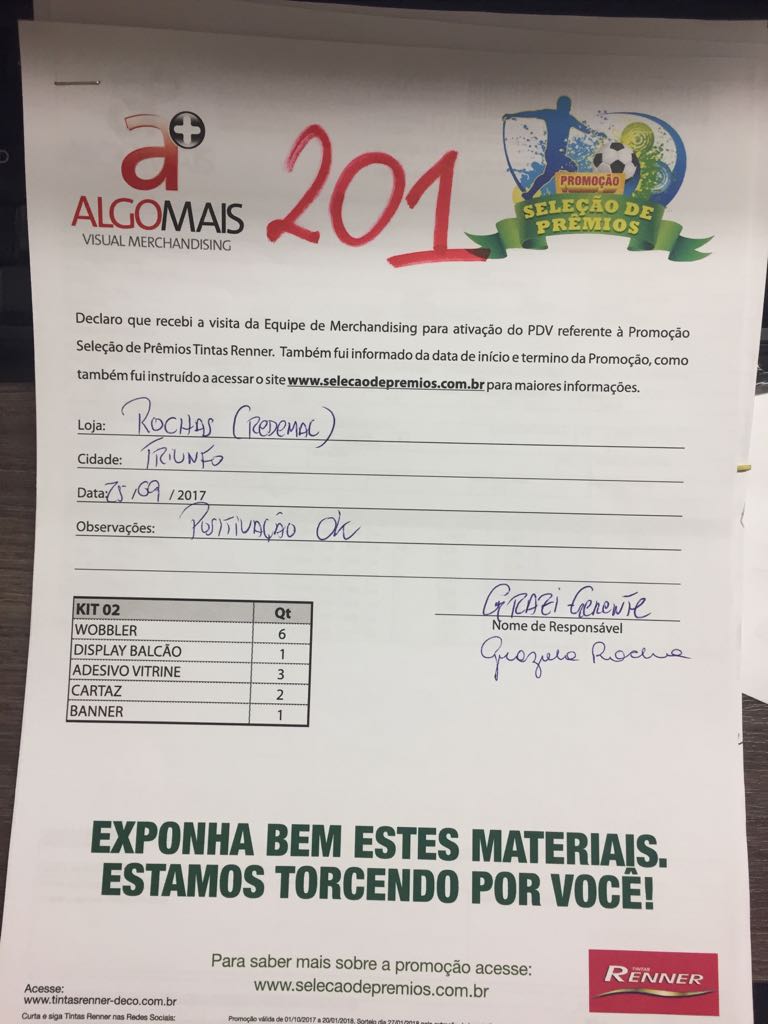 a+
ALGOMAIS
VISUAL MERCHANDISING
201
PROMOÇÃO
SELEÇÃO DE
PRÊMIOS
Declaro que recebi a visita da Equipe de Merchandising para ativação do PDV referente à Promoção
Seleção de Prêmios Tintas Renner. Também fui informado da data de início e termino da Promoção, como
também fui instruído a acessar o site www.selecaodepremios.com.br para maiores informações.
Loja: ROCHAS (REDEMAC)
Cidade: TRIUNFO
Data: 25/09 / 2017
Observações: POSITIVAÇÃO OK
GRAZI GERENTE
Nome de Responsável
Rocha
KIT 02 Qt
WOBBLER 6
DISPLAY BALCÃO 1
ADESIVO VITRINE 3
CARTAZ 2
BANNER 1
EXPONHA BEM ESTES MATERIAIS.
ESTAMOS TORCENDO POR VOCÊ!
Para saber mais sobre a promoção acesse:
www.selecaodepremios.com.br
TINTAS
RENNER
Acesse:
www.tintasrenner-deco.com.br
Curta e siga Tintas Renner nas Redes Sociais:
Promoção válida de 01/10/2017 a 20/01/2018. Sorteio dia 27/01/2018